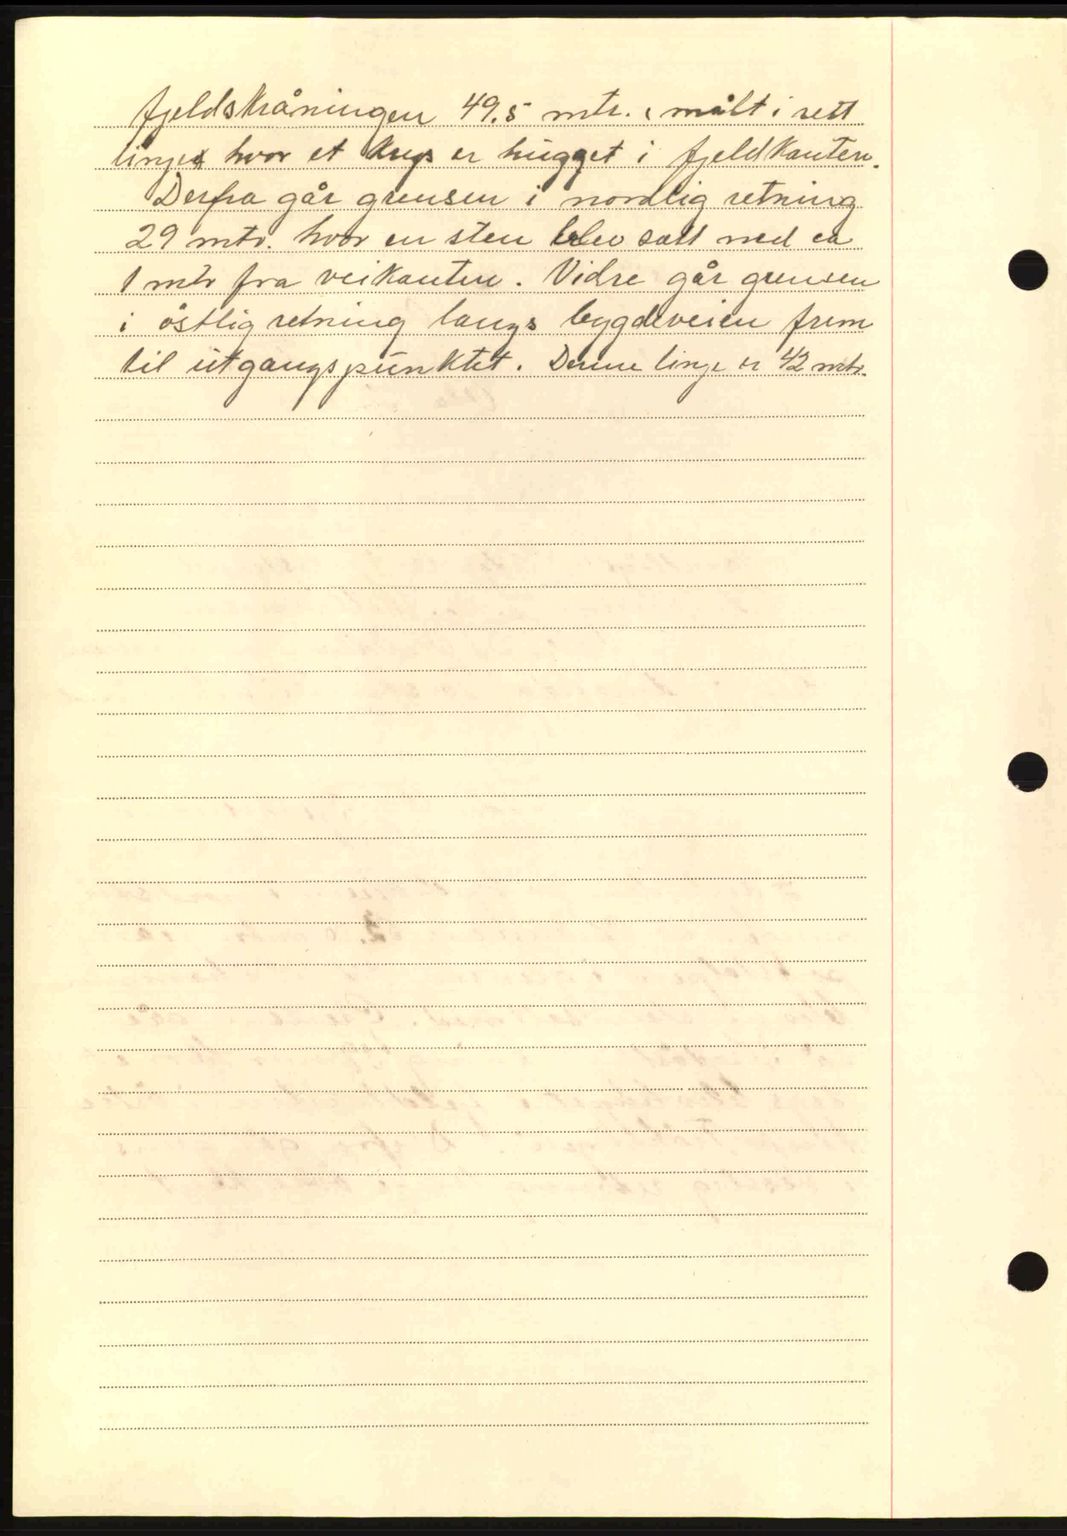 fjeldskråningen 49.5 mtr. (målt i rett
linje) hvor et krys er hugget i fjeldkanten.
Derfra går grensen i nordlig retning
29 mtr. hvor en sten blev satt ned ca
1 mtr fra veikanten. Vidre går grensen
i östlig retning langs bygdeveien frem
til utgangspunktet. Denne linje er 42 mtr.